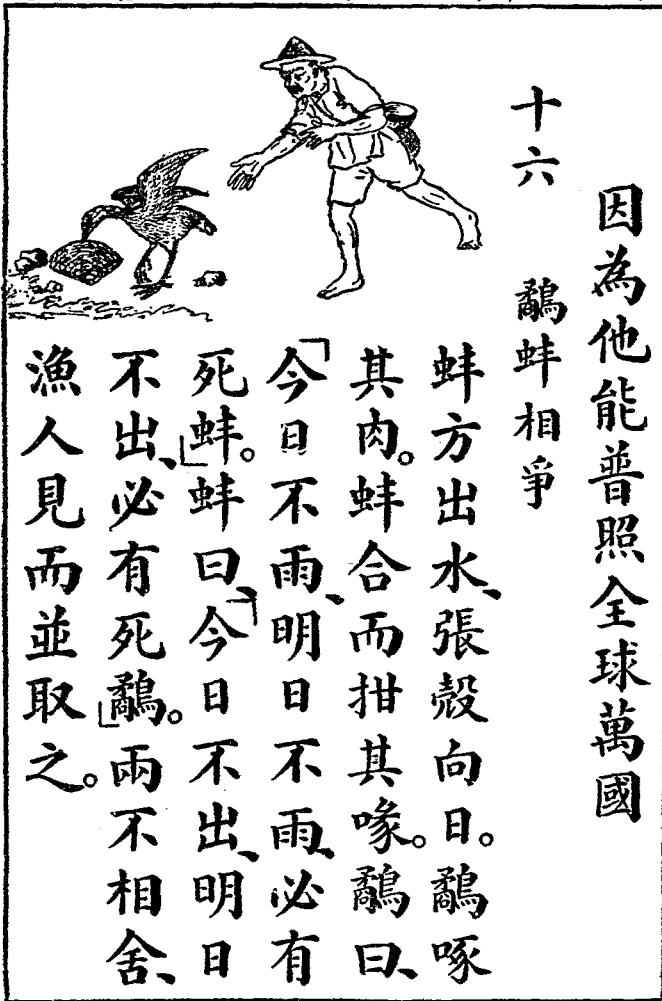 因為他能普照全球萬國
十六 鷸蚌相爭
蚌方出水、張殼向日。鷸啄
其肉。蚌合而拑其喙。鷸曰、
「今日不雨、明日不雨、必有
死蚌。」蚌曰、「今日不出、明日
不出、必有死鷸。」兩不相舍、
漁人見而並取之。